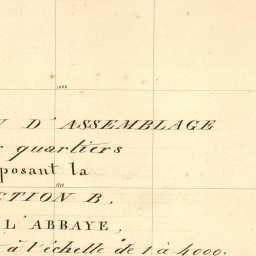 D'ASSEMBLAGE
quartiers
posant la
CTION B,
L'ABBAYE,
à l'échelle de 1 à 4000.